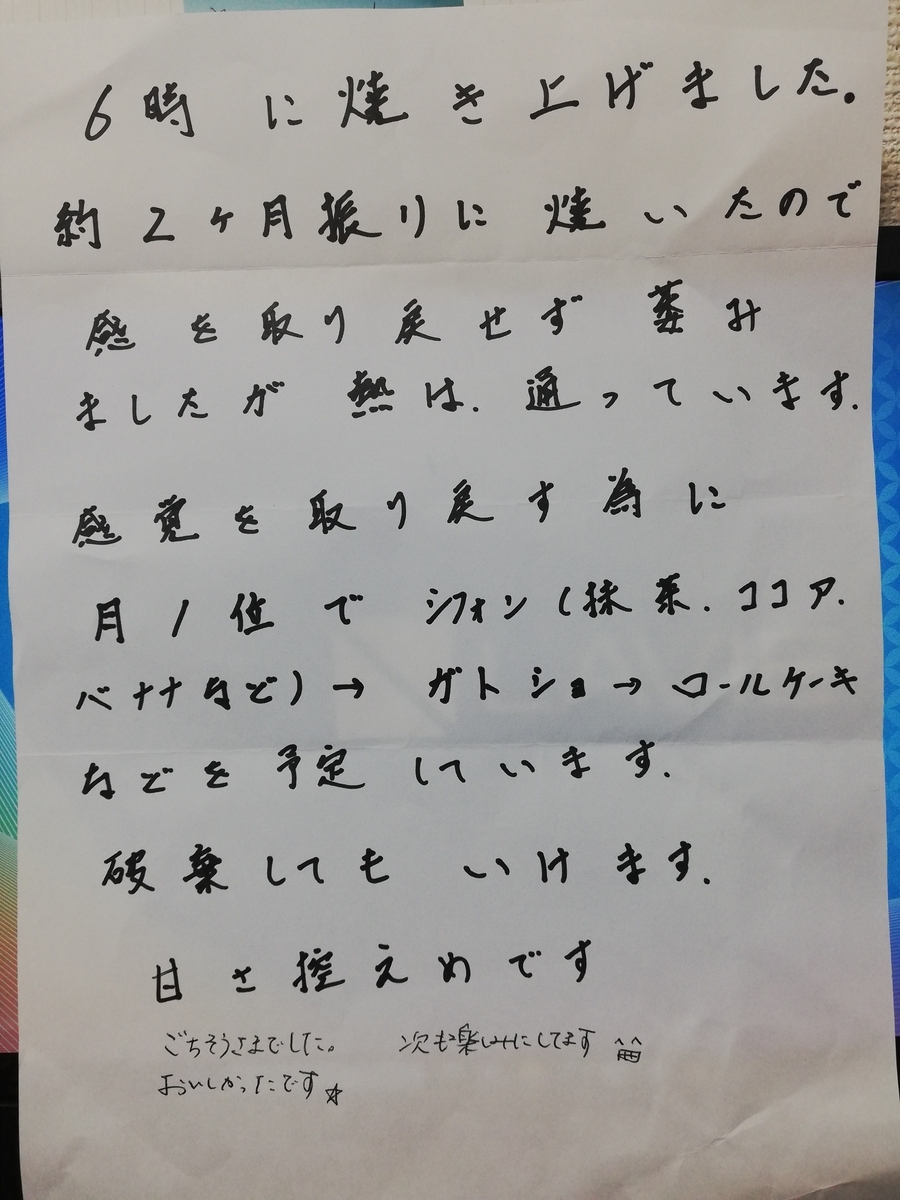 6時に焼き上げました。
約2ヶ月振りに焼いたので
感を取り戻せず萎み
ましたが熱は.通っています.
感覚を取り戻す為に
月1位でシフォン(抹茶.ココア.
バナナなど)→ガトショ→ロールケーキ
などを予定しています.
破棄してもいけます.
甘さ控えめです
ごちそうさまでした。 次も楽しみにしてます
おいしかったです☆